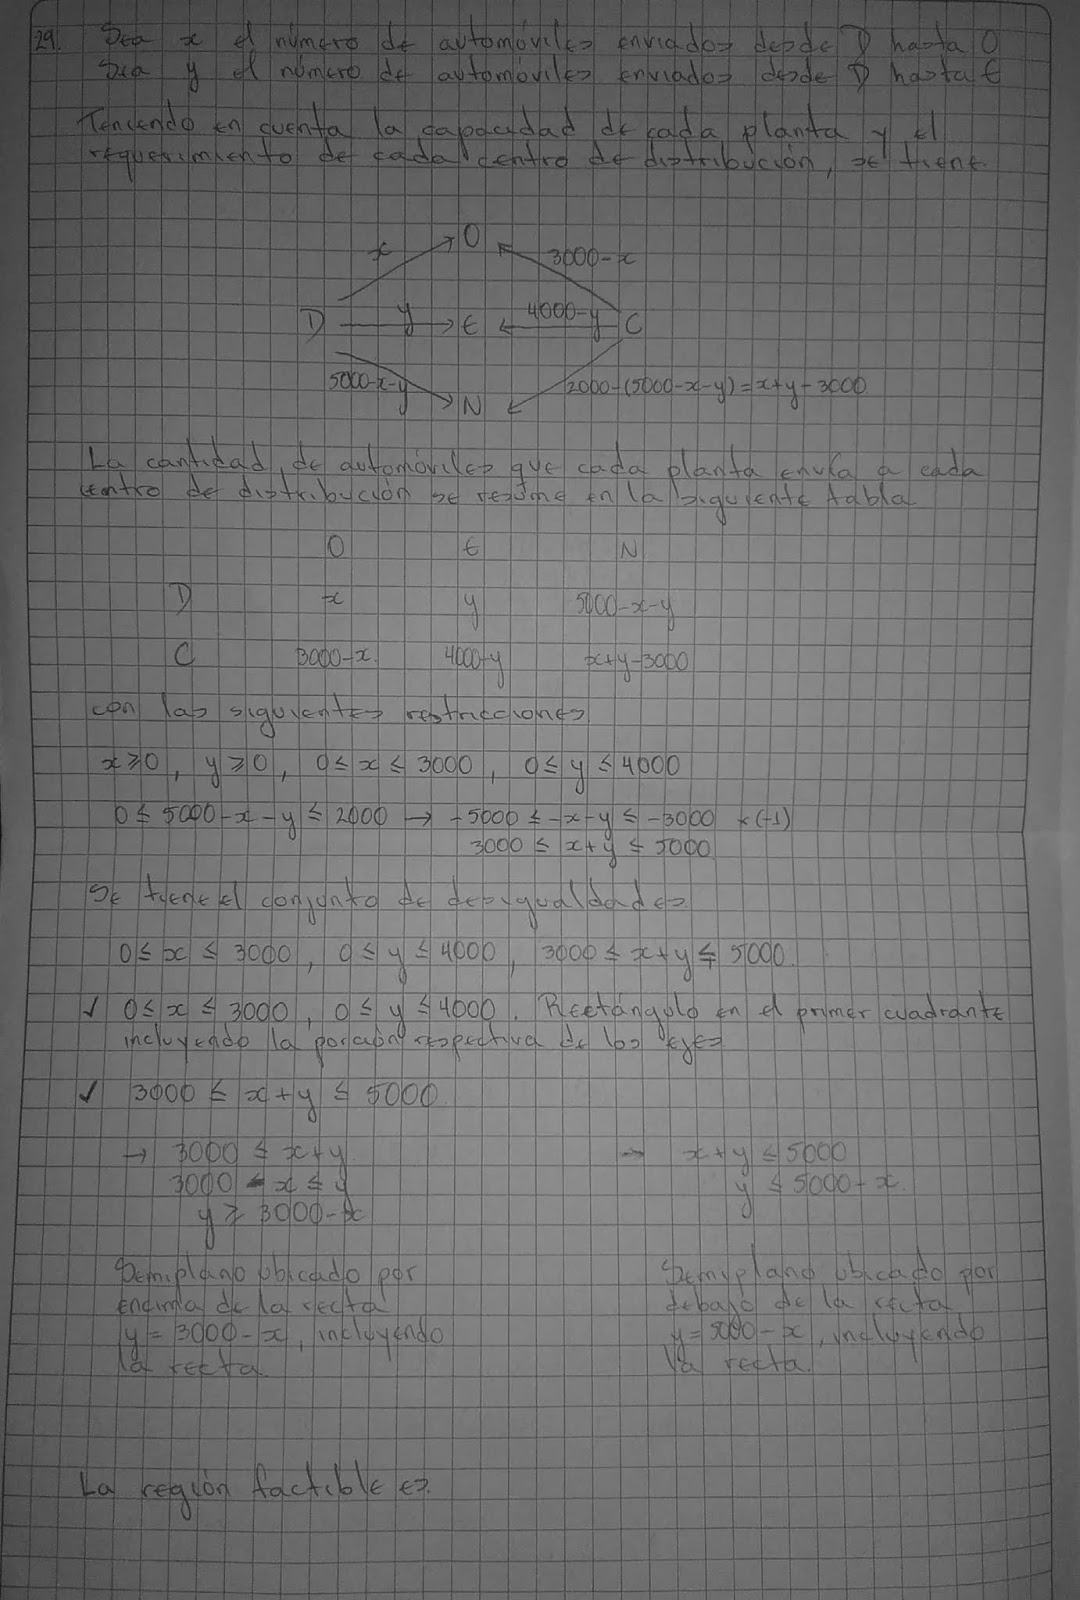 29. Sea x el número de automóviles enviados desde D hasta O
Sea y el número de automóviles enviados desde D hasta E
Teniendo en cuenta la capacidad de cada planta y el
requerimiento de cada centro de distribución, se tiene.
O
x
3000-x
D
y
E
4000-y
C
5000-x-y
N
2000-(5000-x-y)=x+y-3000
La cantidad de automóviles que cada planta envía a cada
centro de distribución se resume en la siguiente tabla
O E N
D x y 5000-x-y
C 3000-x 4000-y x+y-3000
con las siguientes restricciones
x≥0, y≥0, 0≤x≤3000, 0≤y≤4000
0≤5000-x-y≤2000 → -5000≤-x-y≤-3000 *(-1)
3000≤x+y≤5000
Se tiene el conjunto de desigualdades
0≤x≤3000, 0≤y≤4000, 3000≤x+y≤5000.
✓ 0≤x≤3000, 0≤y≤4000. Rectángulo en el primer cuadrante
incluyendo la porción respectiva de los ejes
✓ 3000≤x+y≤5000
→ 3000≤x+y → x+y≤5000
3000-x≤y y≤5000-x
y≥3000-x
Semiplano ubicado por
encima de la recta
y=3000-x, incluyendo
la recta.
Semiplano ubicado por
debajo de la recta
y=5000-x, incluyendo
la recta.
La región factible es.